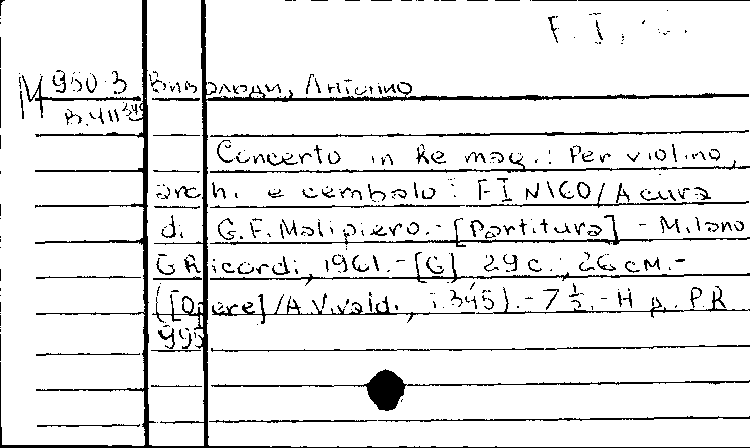 F. I,
M 950-3 Вивальди, Антонио
В.411345
Concerto in Re mag.: Per violino,
archi e cembalo: F I N 160 / A cura
di G.F. Malipiero.- [Partitura] - Milano
G Ricordi, 1961.- [6] 29 c.; 26 см.-
([Opere] / A. Vivaldi, t. 345).- 7 1/2.- Н д. P.R
995